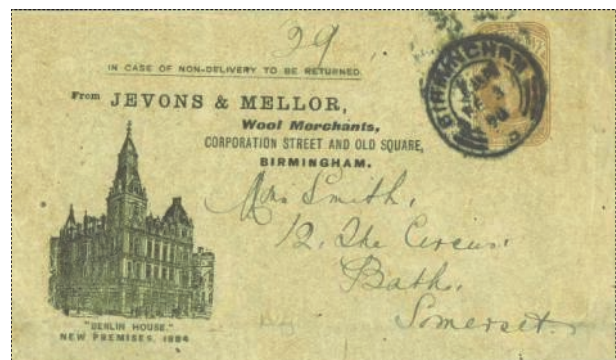 29
IN CASE OF NON-DELIVERY TO BE RETURNED.
From JEVONS & MELLOR,
Wool Merchants,
CORPORATION STREET AND OLD SQUARE,
BIRMINGHAM.
BIRMINGHAM
Mrs Smith,
12, The Circus.
Bath.
Somerset.
"BERLIN HOUSE."
NEW PREMISES, 1884